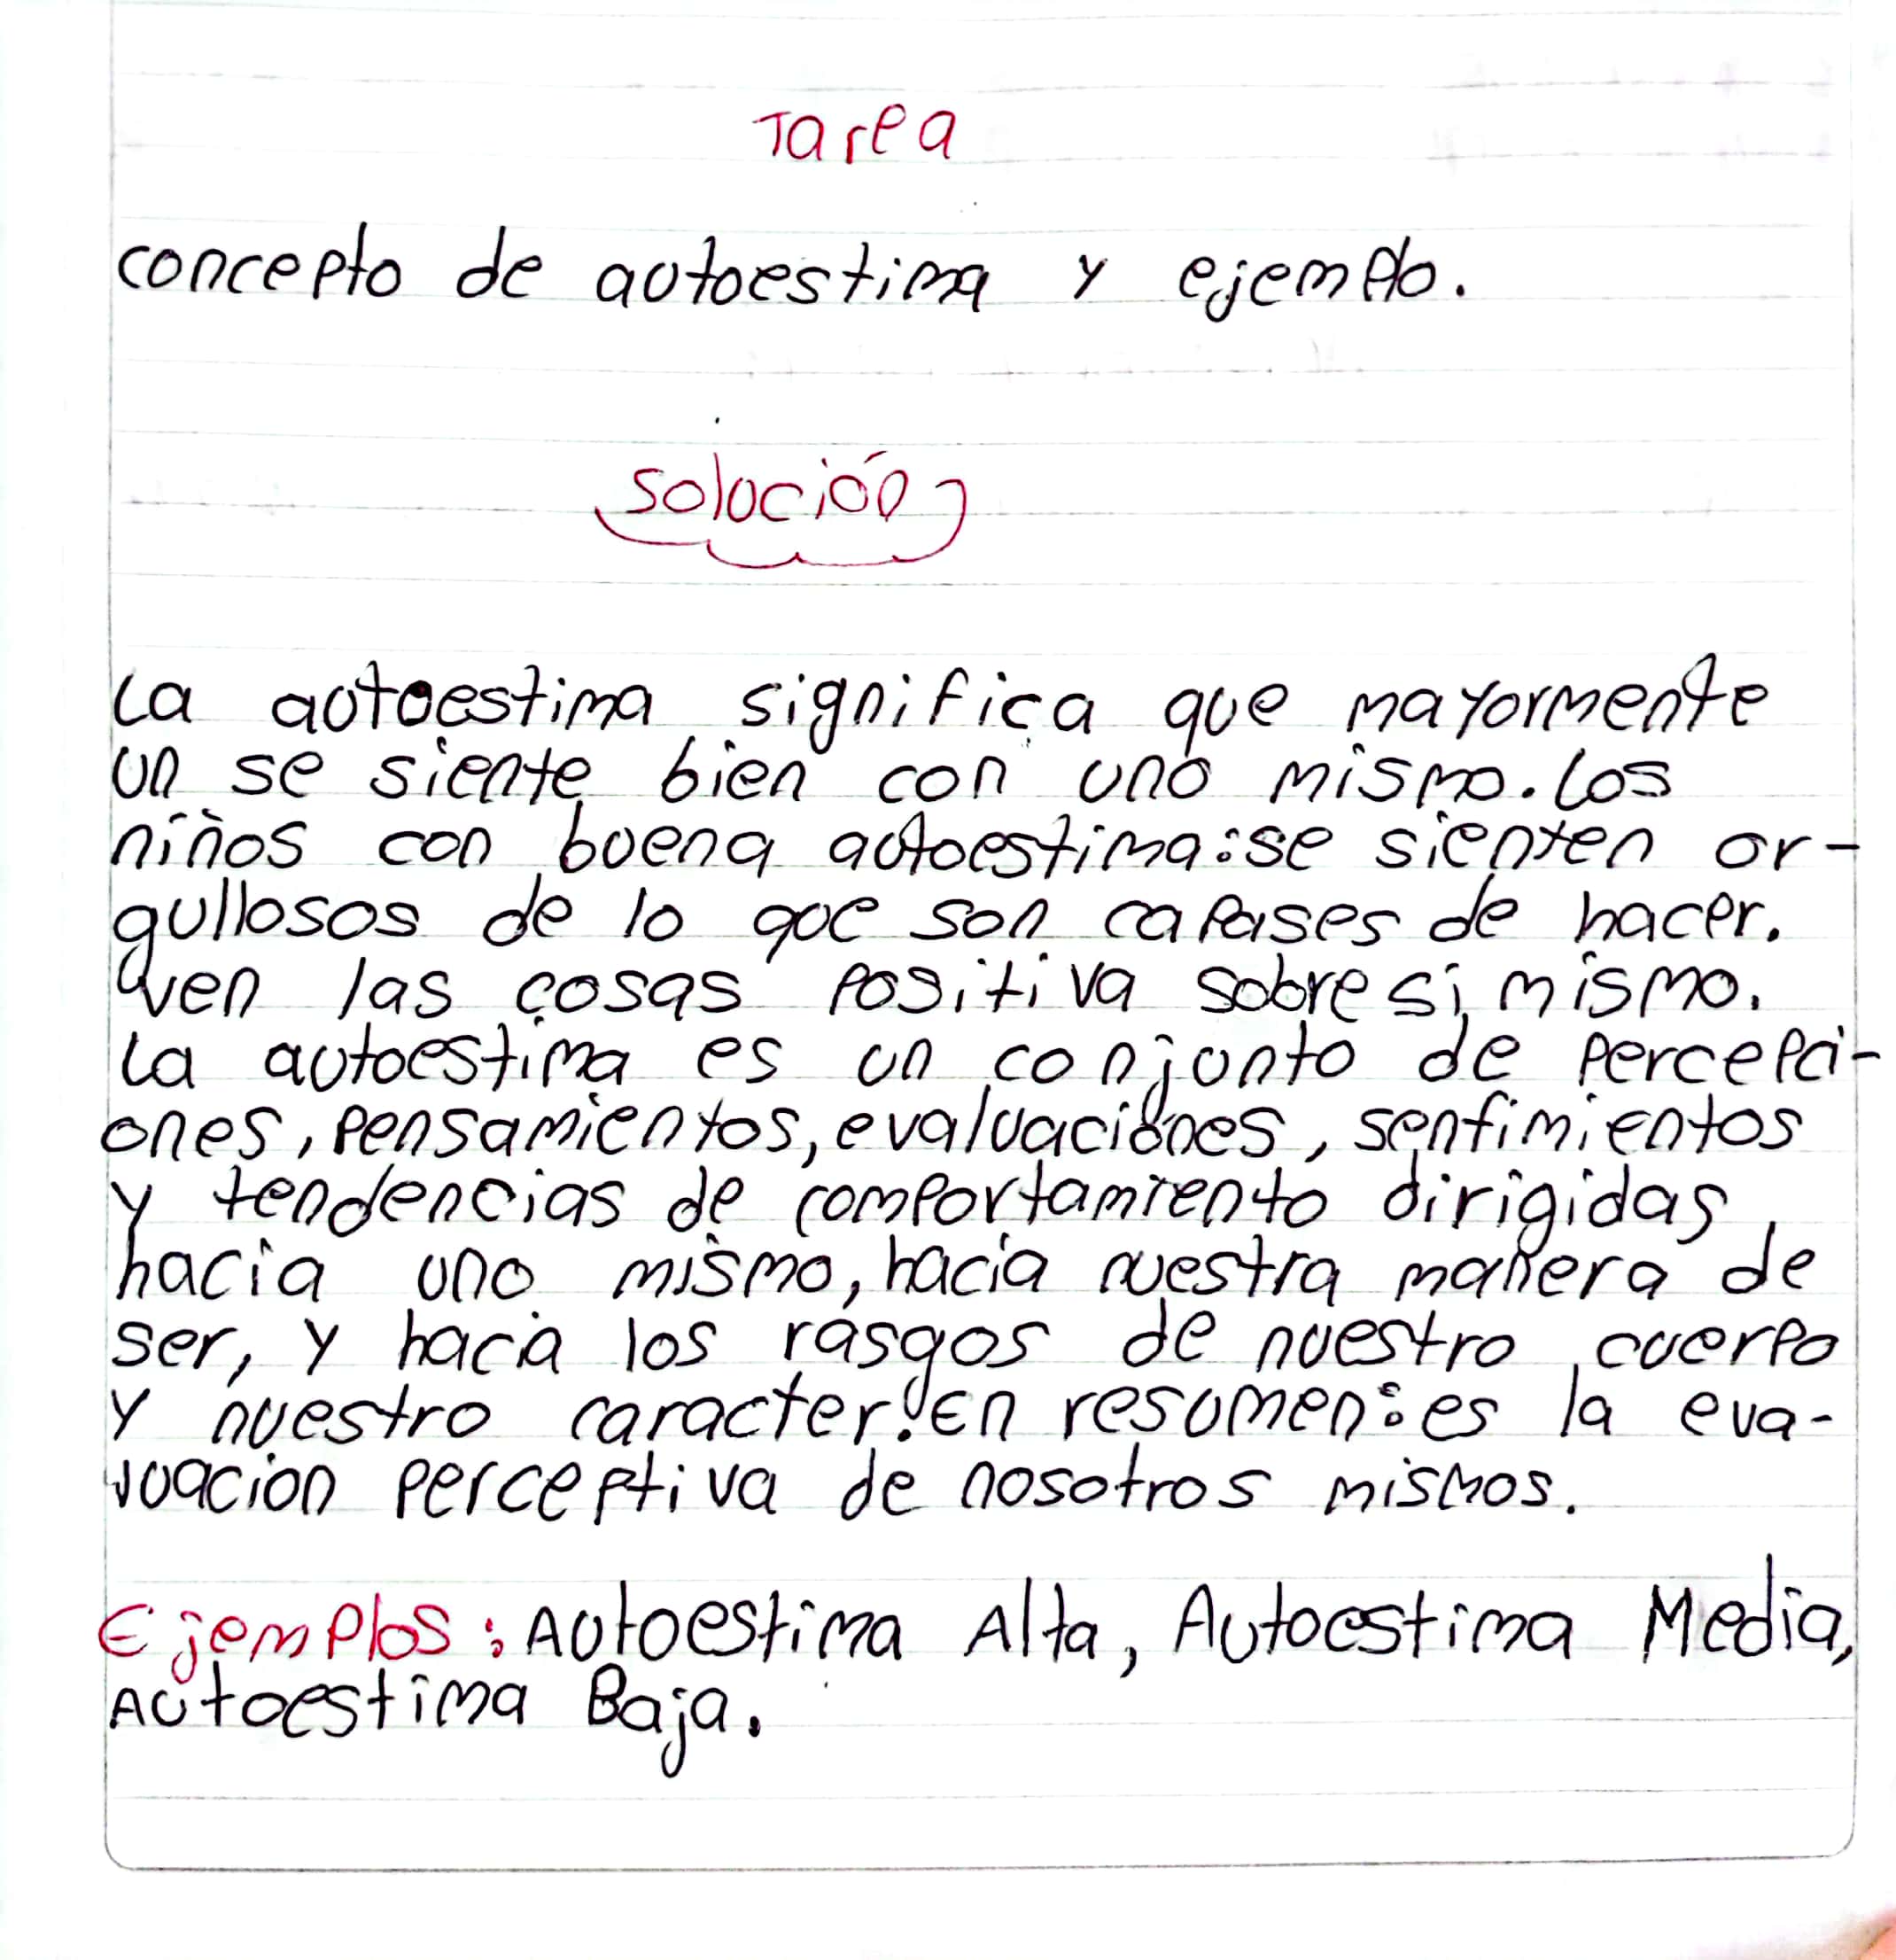 Tarea
concepto de autoestima y ejemplo.
solución
La autoestima significa que mayormente
un se siente bien con uno mismo. Los
niños con buena autoestima: se sienten or-
gullosos de lo que son capases de hacer.
ven las cosas positiva sobre si mismo.
La autoestima es un conjunto de percepci-
ones, pensamientos, evaluaciones, sentimientos
y tendencias de comportamiento dirigidas
hacia uno mismo, hacia nuestra manera de
ser, y hacia los rasgos de nuestro cuerpo
y nuestro caracter. En resumen: es la eva-
luacion perceptiva de nosotros mismos.
Ejemplos: Autoestima Alta, Autoestima Media,
Autoestima Baja.